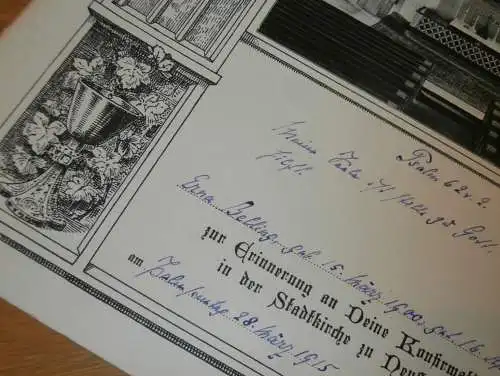 Psalm 62 v. 2
Meine Seele ist stille zu Gott,
hilft.
Erna Belling, geb. 15. März 1900, get. 16.
zur Erinnerung an Deine Konfirmat
in der Stadtkirche zu
am Palmsonntag 28. März 1915